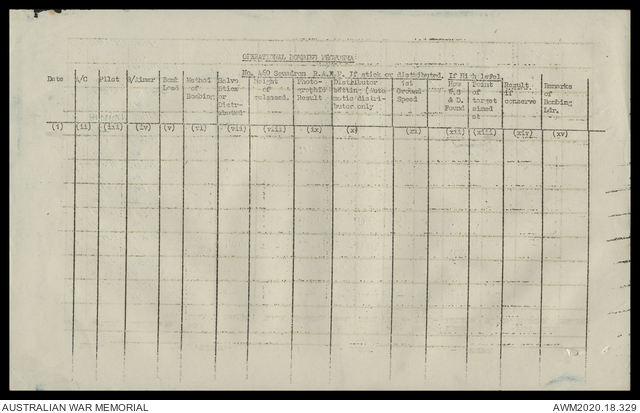 OPERATIONAL BOMBING PROFORMA
No. 460 Squadron R.A.A.F. If stick or distributed. If High level.
Date A/C Pilot B/Aimer Bomb Load Method of Bombing Salvo Stick or Distributed Height of released. Photographic Result Distributor Setting (Automatic distributor only Ground Speed How W.S & D. Found Point of target aimed at Result if conserve Remarks of Bombing Ldr.
(i) (ii) (iii) (iv) (v) (vi) (vii) (viii) (ix) (x) (xi) (xii) (xiii) (xiv) (xv)
AUSTRALIAN WAR MEMORIAL
AWM2020.18.329